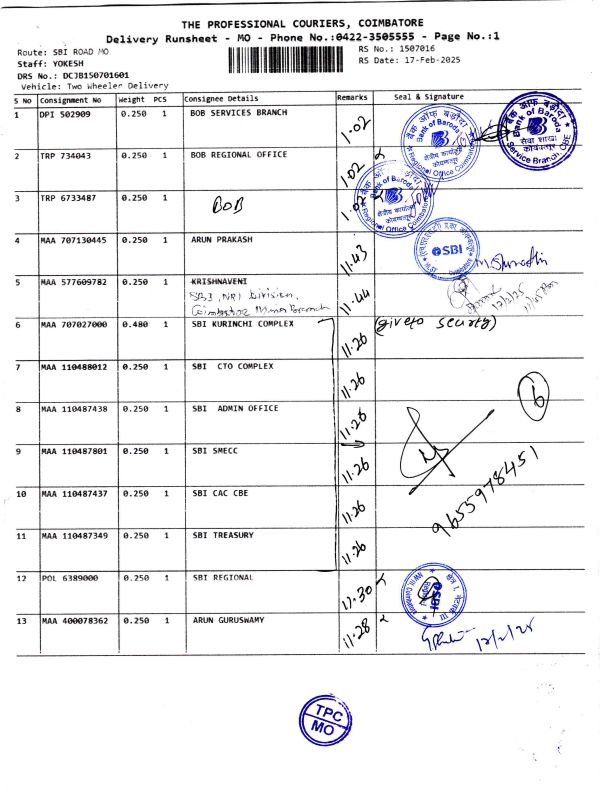 THE PROFESSIONAL COURIERS, COIMBATORE
Delivery Runsheet - MO - Phone No.:0422-3505555 - Page No.:1
Route: SBI ROAD MO
RS No.: 1507016
Staff: YOKESH
RS Date: 17-Feb-2025
DRS No.: DCJB150701601
Vehicle: Two Wheeler Delivery
S No Consignment No Weight PCS Consignee Details Remarks Seal & Signature
1 DPI 502909 0.250 1 BOB SERVICES BRANCH 1.02
बैंक ऑफ बड़ौदा
Bank of Baroda
क्षेत्रीय कार्यालय
Regional Office Coimbatore
बैंक ऑफ बड़ौदा
Bank of Baroda
सेवा शाखा
कोयम्बतूर
Service Branch, CBE
2 TRP 734043 0.250 1 BOB REGIONAL OFFICE 1.02
3 TRP 6733487 0.250 1 BOB 1.02
Bank of Baroda
क्षेत्रीय कार्यालय
Regional Office Coimbatore
4 MAA 707130445 0.250 1 ARUN PRAKASH 11.43
SBI
5 MAA 577609782 0.250 1 KRISHNAVENI 11.44
SBI, NRI Division,
Coimbatore Main Branch
17/2/25
6 MAA 707027000 0.480 1 SBI KURINCHI COMPLEX 11.26 (giveto securty)
7 MAA 110488012 0.250 1 SBI CTO COMPLEX 11.26
8 MAA 110487438 0.250 1 SBI ADMIN OFFICE 11.26 6
9 MAA 110487801 0.250 1 SBI SMECC 11.26
9655978451
10 MAA 110487437 0.250 1 SBI CAC CBE 11.26
11 MAA 110487349 0.250 1 SBI TREASURY 11.26
12 POL 6389000 0.250 1 SBI REGIONAL 11.30
13 MAA 400078362 0.250 1 ARUN GURUSWAMY 11.28 17/2/25
TPC
MO